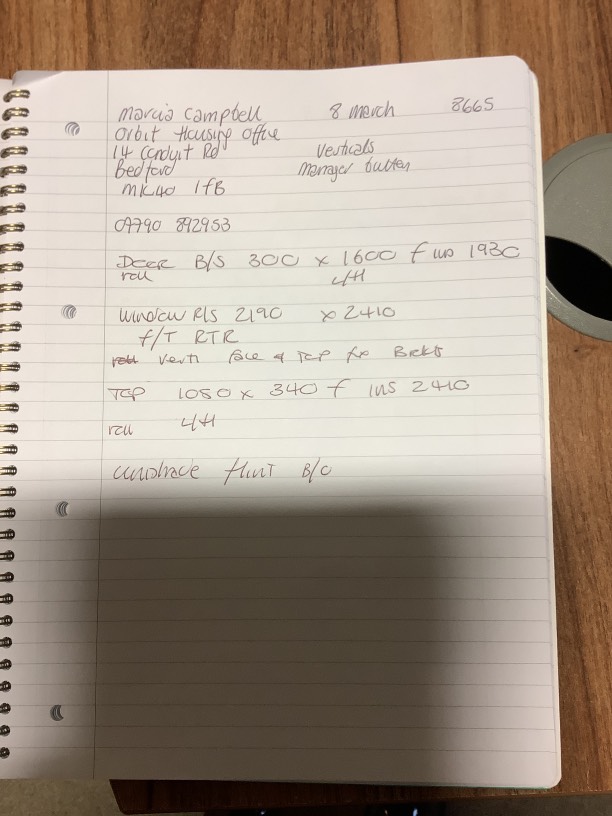 Marcia Campbell 8 March 8665
Orbit Housing Office
14 Conduit Rd Verticals
Bedford Manager
MK40 1FB
07790 892953
Door B/S 300 x 1600 f ins 1930
roll L/H
Window R/S 2190 x 2410
f/T RTR
Verti face & Top fix Brckts
Top 1050 x 340 f ins 2410
roll L/H
HUNT B/O